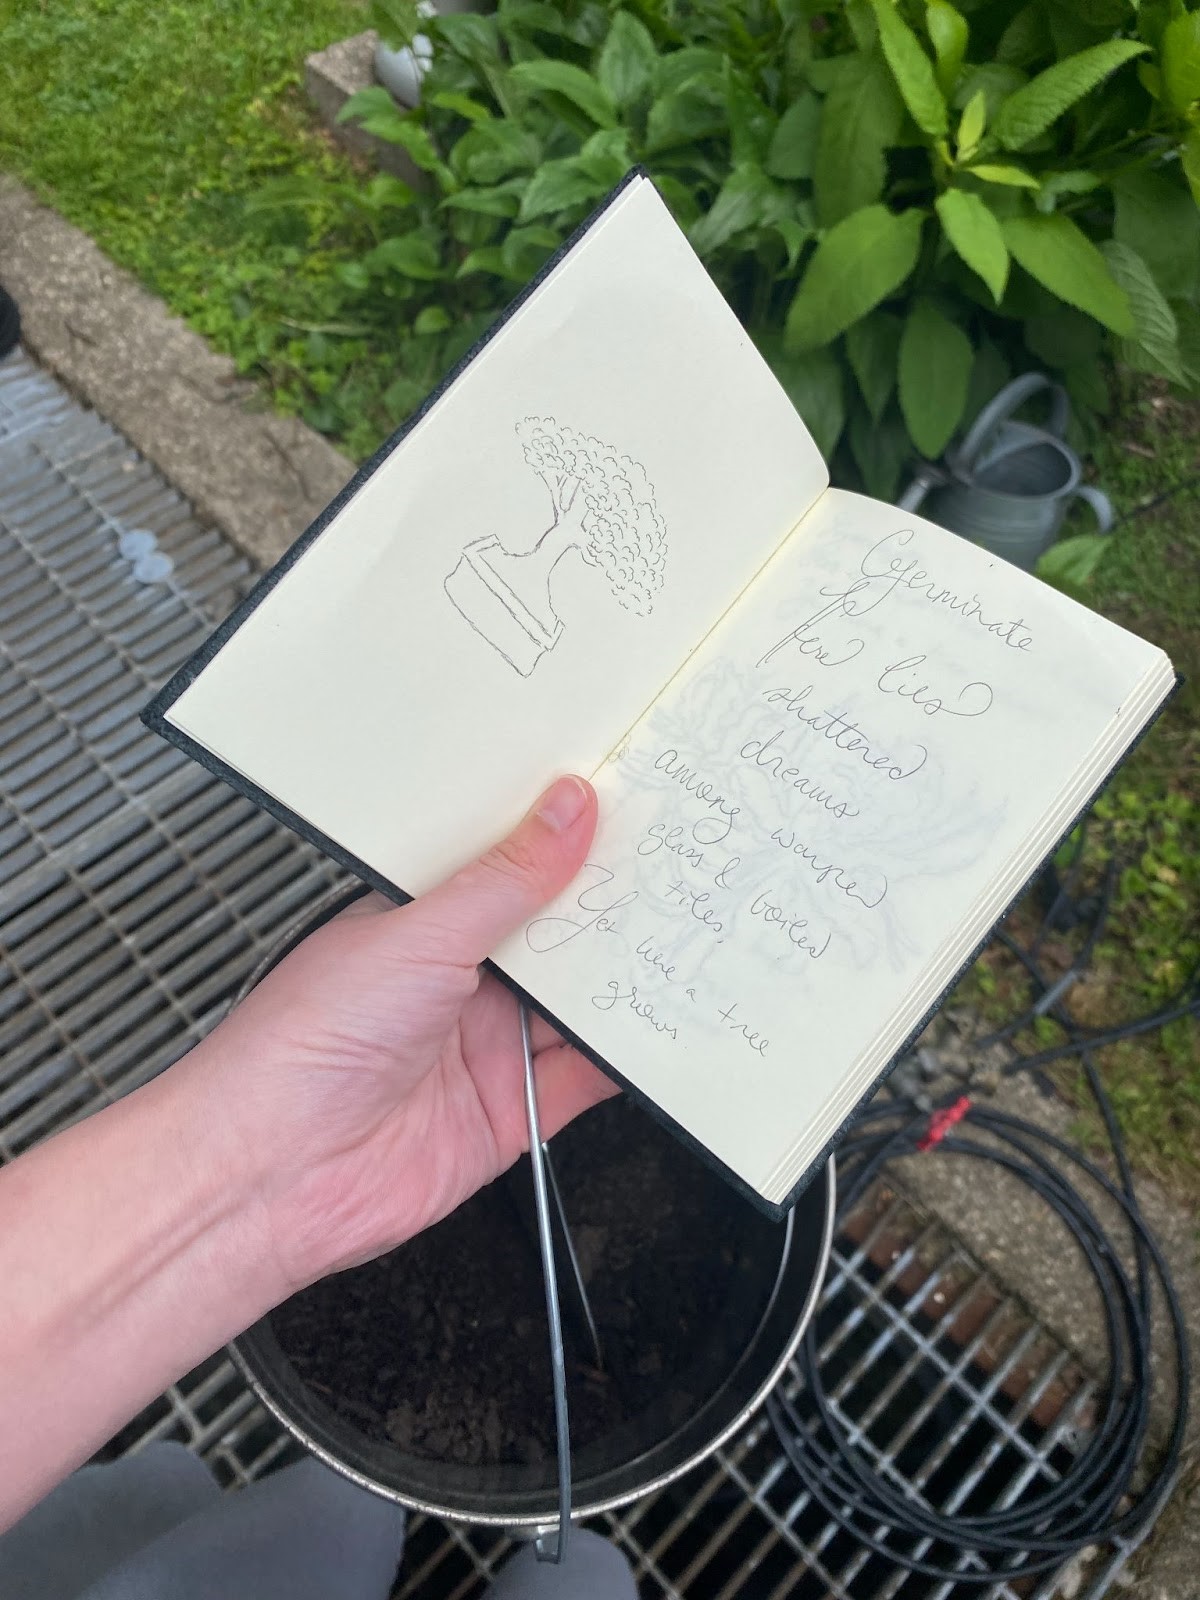 Germinate
Here lies
shattered
dreams
among warped
glass & boiled
tiles,
Yet here a tree
grows.